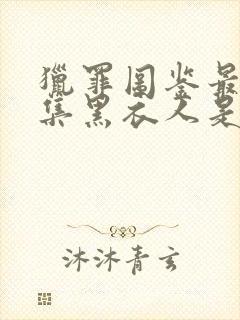 獵罪圖鉴最
集黑衣人是
沐沐青玄